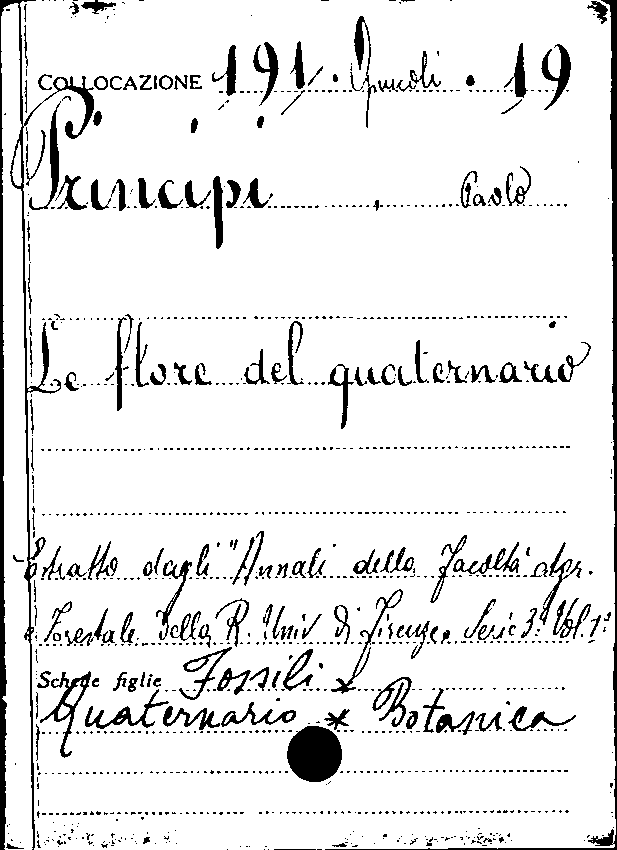 COLLOCAZIONE 191. Opuscoli . 19
Principi , Paolo
Le flore del quaternario
Estratto dagli "Annali della Facoltà agr.
e Forestale della R. Univ di Firenze Serie 3ª Vol. 1º
Schede figlie Fossili *
Quaternario * Botanica